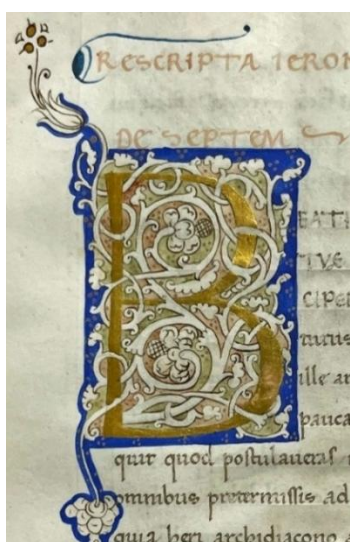 RESCRIPTA IERON
DE SEPTEM
BEATI
TIVE
CIPE
ille ar
pauca
quit quod postulaueras
omnibus pretermissis ad
quia heri archidiacono